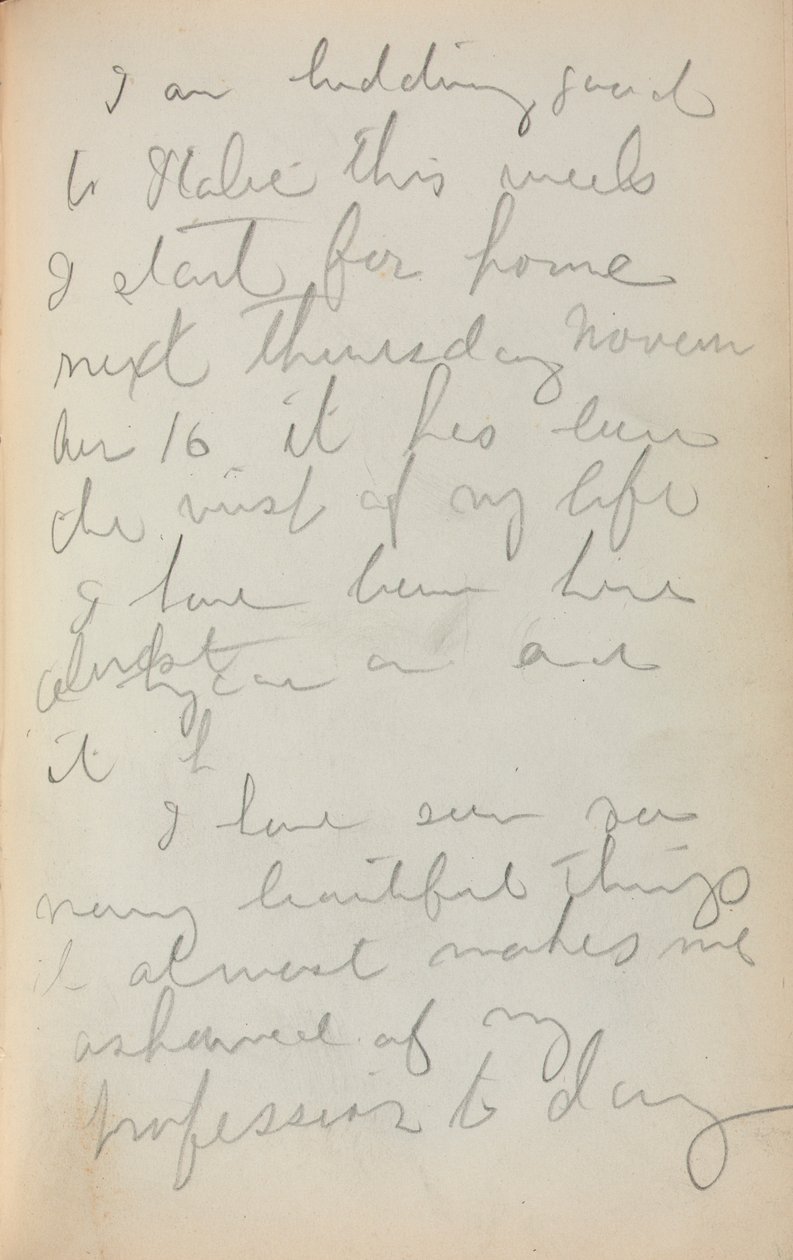 I am bidding good
to Italie this week
I start for home
next Thursday Novem
ber 16 it has been
the visit of my life
I have been here
almost a year an and
it h
I have seen so
many beautiful things
it almost makes me
ashamed of my
profession to day